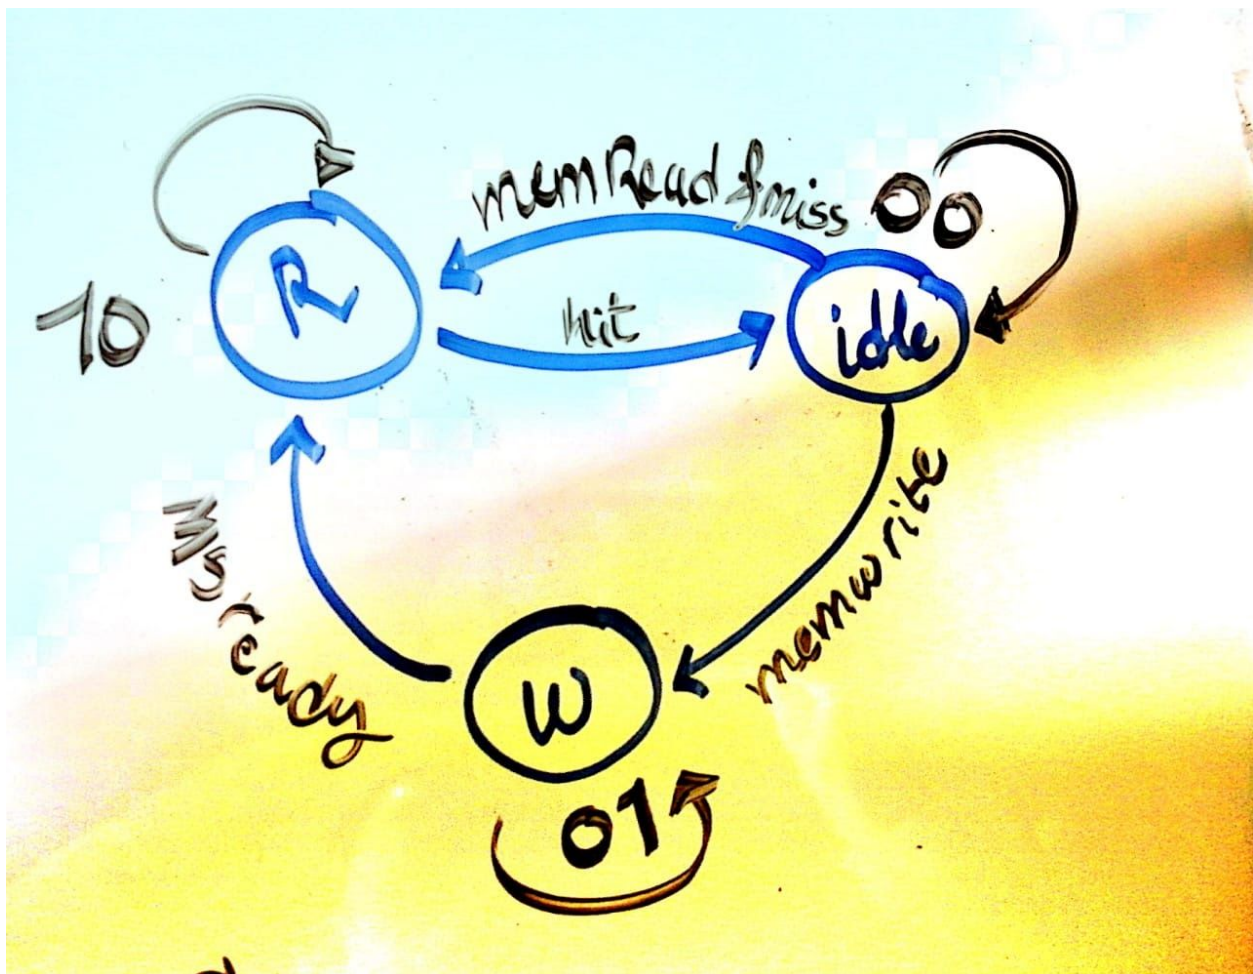 memRead & miss
00
R
hit
idle
10
Msready
memwrite
W
01